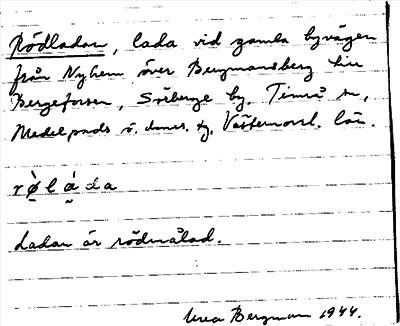 Rödladan, lada vid gamla byvägen
från Nyhem över Bergmansberg till
Bergeforsen, Sörberge by, Timrå sn,
Medelpads ö. doms. tg, Västernorrl. län.
rø̀lá̠da
Ladan är rödmålad.
Bergman 1944.